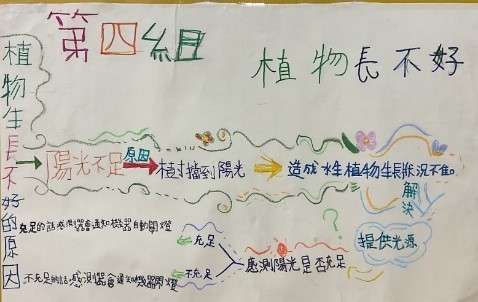 第四組
植物長不好
植物生長不好的原因
陽光不足
原因
樹擋到陽光
造成水生植物生長狀況不佳。
解決
提供光源
感測陽光是否充足
充足
不充足
充足的話感測器會通知機器自動關燈
不充足的話感測器會通知機器開燈